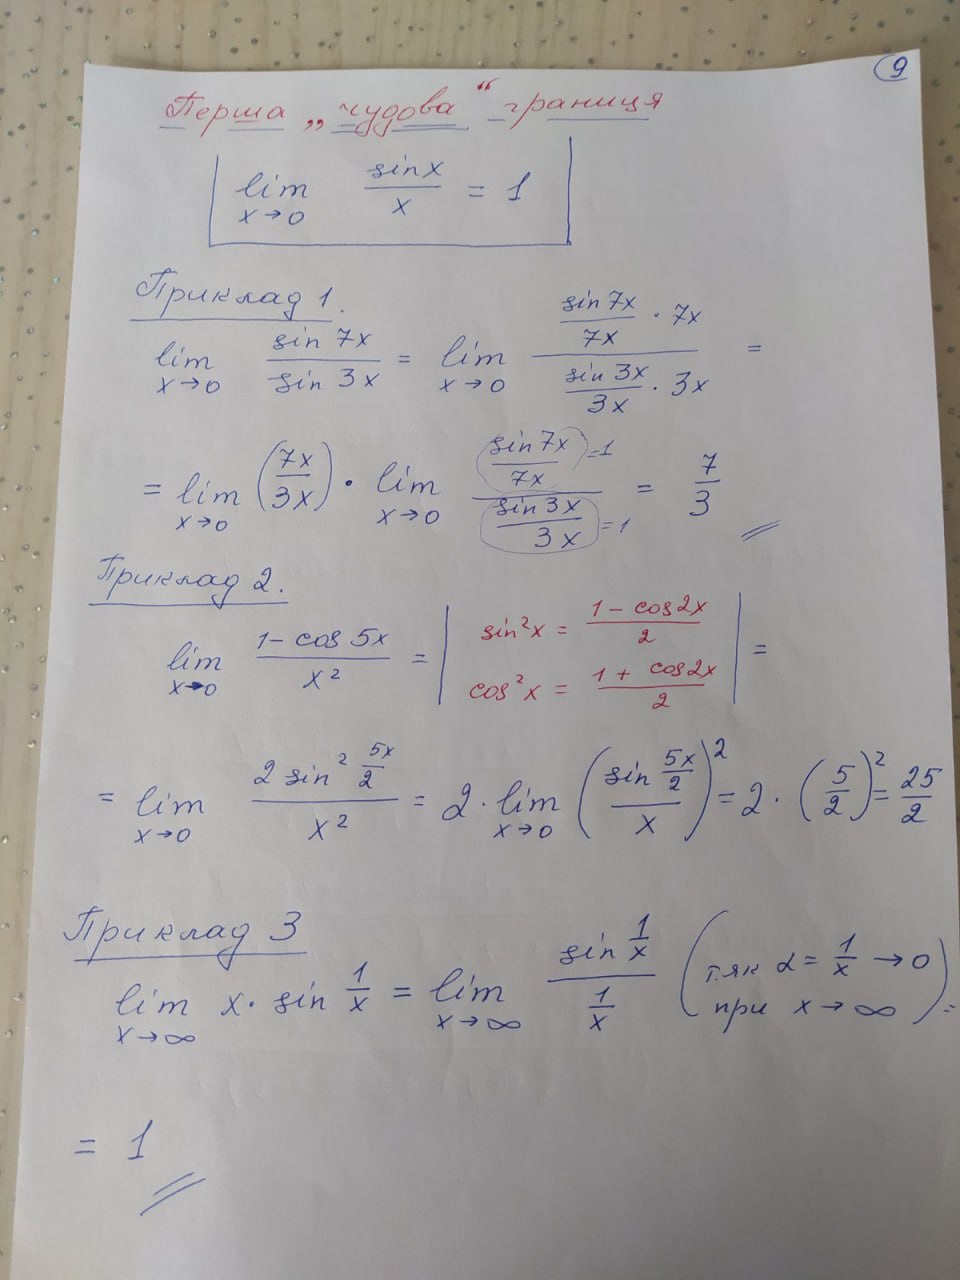 9
Перша „чудова“ границя
lim x→0 sinx/x = 1
Приклад 1.
lim x→0 sin 7x / sin 3x = lim x→0 (sin7x/7x · 7x) / (sin 3x/3x · 3x) =
= lim x→0 (7x/3x) · lim x→0 (sin7x/7x)=1 / (sin3x/3x)=1 = 7/3
Приклад 2.
lim x→0 (1-cos 5x)/x² = | sin²x = (1-cos2x)/2
cos²x = (1+cos2x)/2 | =
= lim x→0 (2 sin² 5x/2)/x² = 2· lim x→0 ((sin 5x/2)/x)² = 2 · (5/2)² = 25/2
Приклад 3
lim x→∞ x· sin 1/x = lim x→∞ (sin 1/x)/(1/x) (т.як α = 1/x → 0
при x → ∞) =
= 1